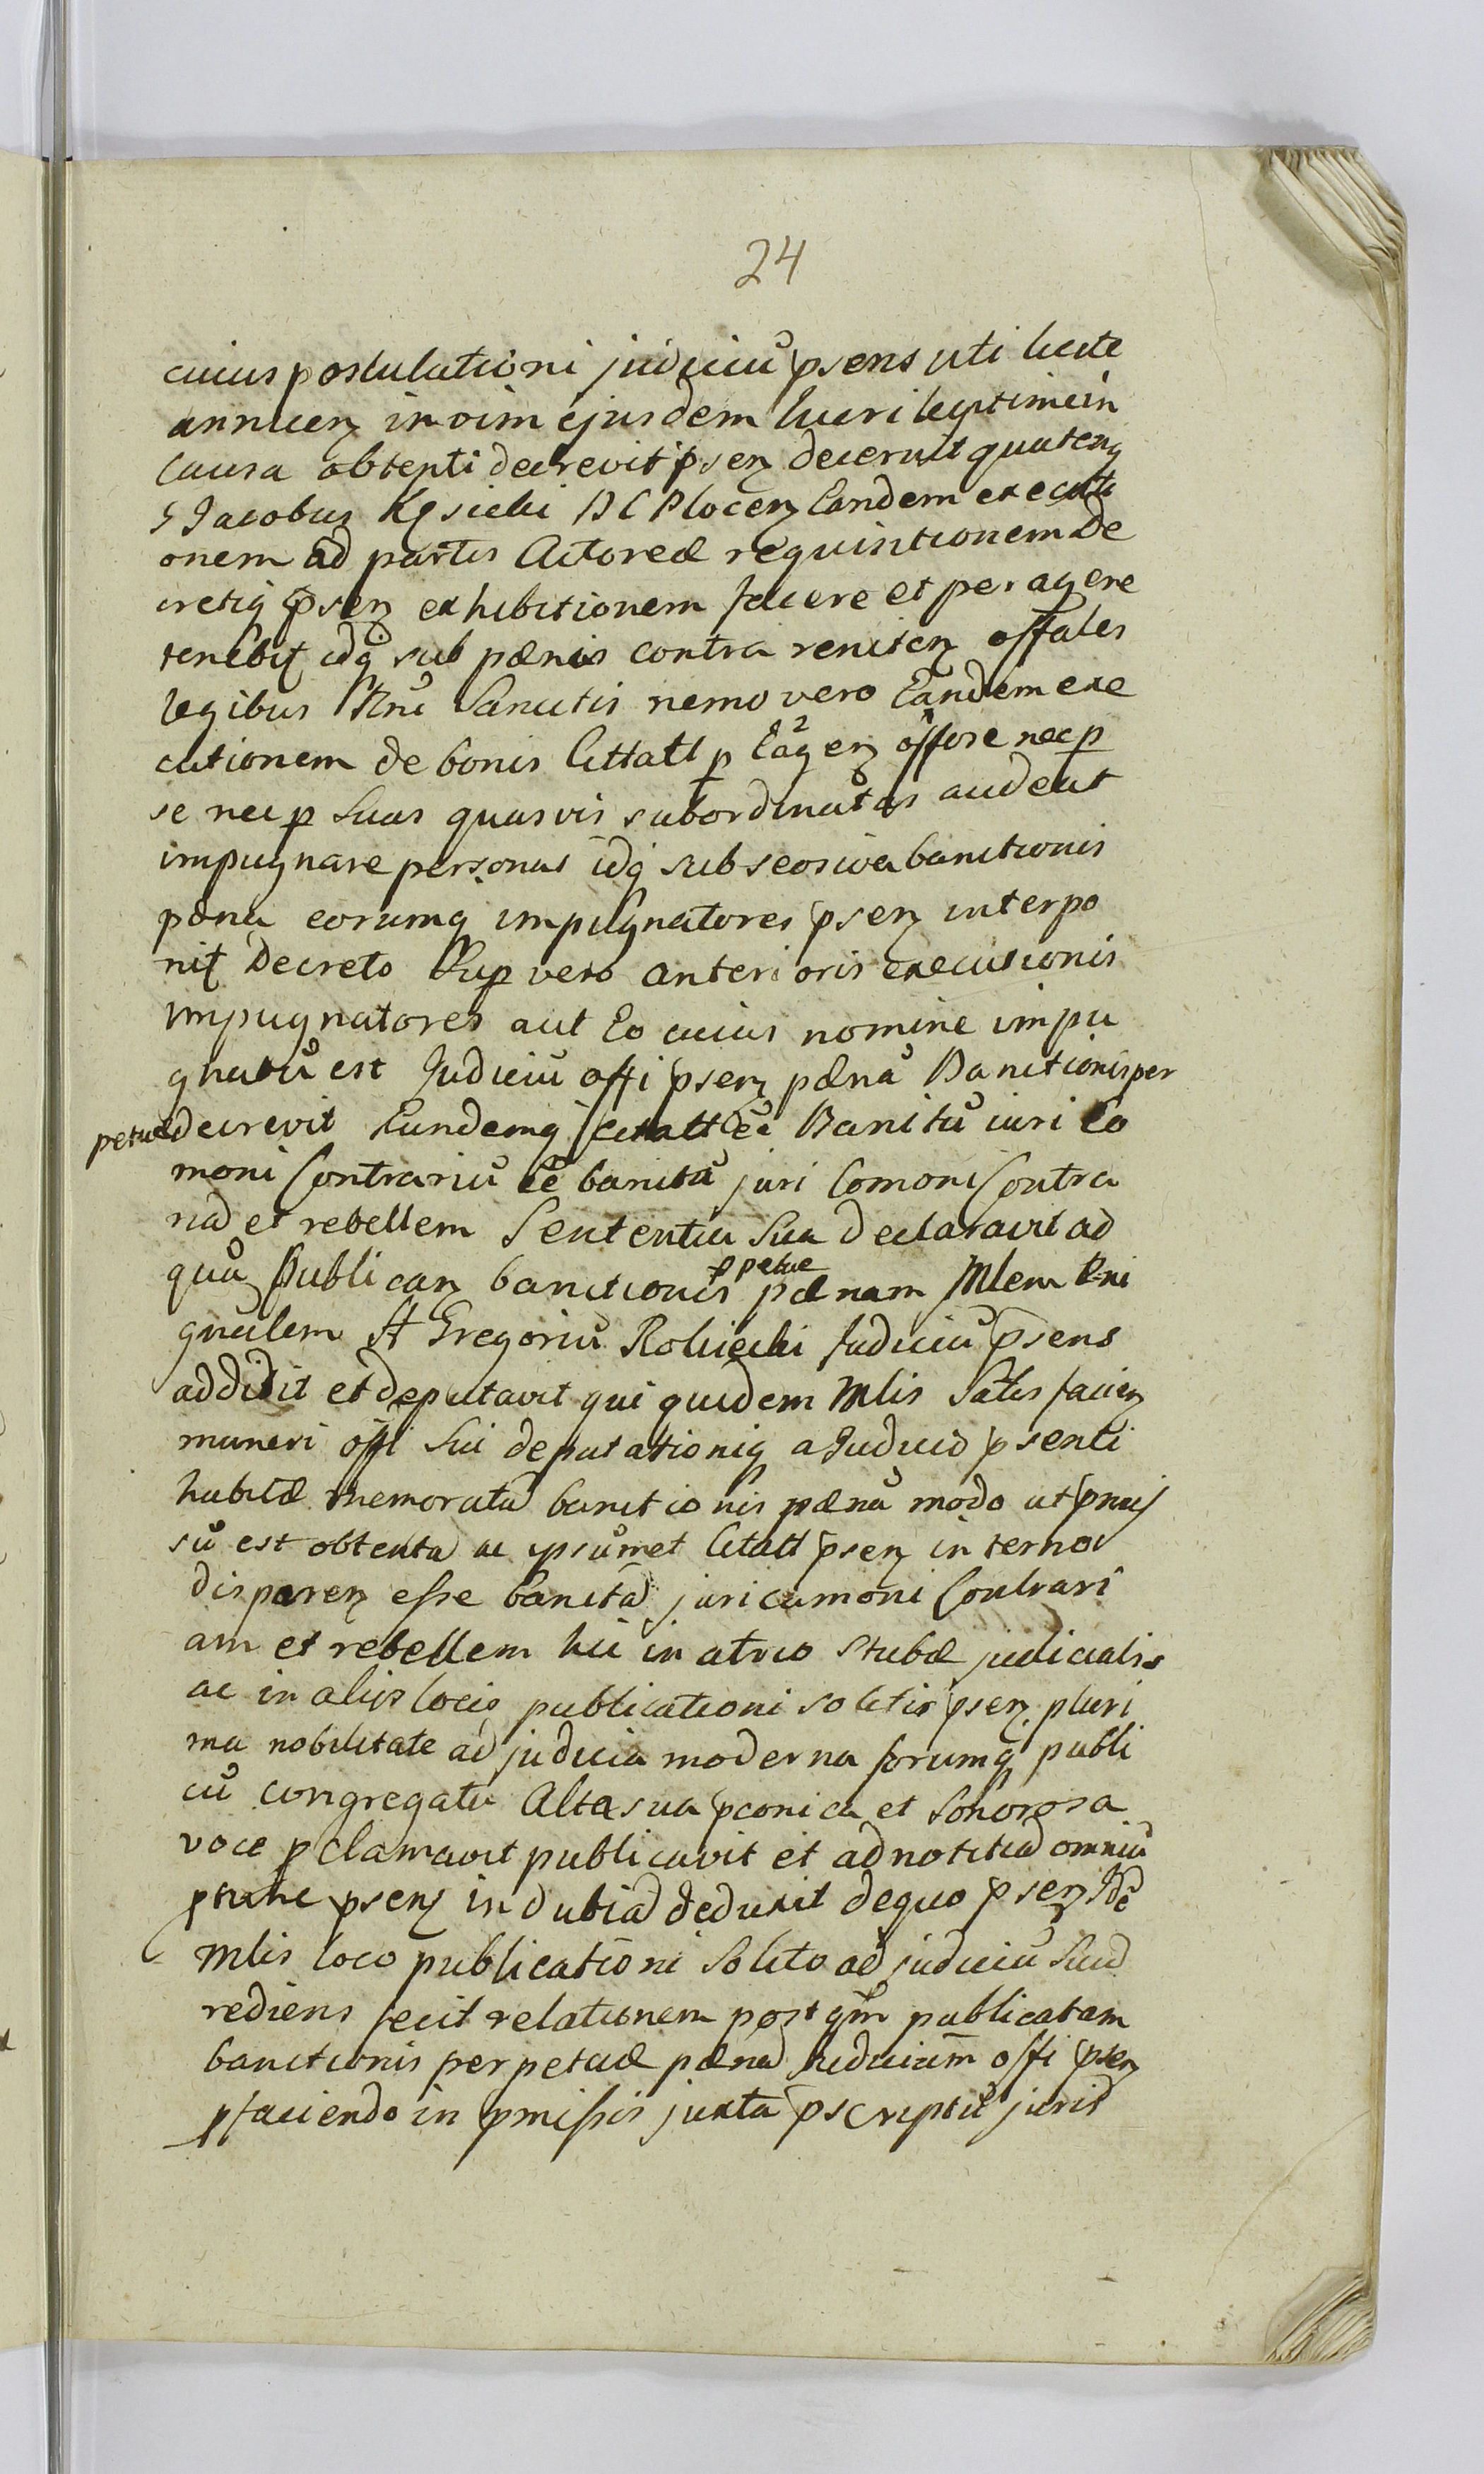 24
cuius postulationi judiciũ psens uti licite
annuen in oim ejusdem lucri legitime in
causa obtenti decrevit psen decernit quaten
S Jacobus Kęsicki B C Plocen Eandem executi
onem ad partis Actoreæ requisitionem De
cretiq psen exhibitionem facere et peragere
tenebit idq sub pænis contra reniten offales
legibus Rni Sancitis nemo vero Eandem exe
cutionem de bonis Cittatt p agen offore nec p
se nec p suas quasvis subordinatas audeat
impugnare personas idq sub seorsiva banitionis
pæna eorumq impugnatores psen interpo
nit Decreto Sup vero anterioris executionis
impugnatores aut Eo cuius nomine impu
gnatũ est Judiciũ offi psen pænã Banitionis per
petuæ decrevit Eundemq Citatt eẽ Banitũ iuri Co
moni Contrariũ eẽ banitũ juri Comoni Contra
riũ et rebellem Sententia sua declaravit ad
quã publican banitionis ppetue pænam Mlem Rni
gnãlem H Gregoriũ Rokicki Judiciũ psens
addidit et deputavit qui quidem Mlis Satis facien
muneri offi sui deputationiq a Judicio psenti
habitæ memoratã banitionis pænã modo ut pmis
sũ est obtentã ac ipsũmet Citatt psen in termo
disparen esse banitã juri cumoni Contrari
am et rebellem hic in atrio stubæ judicialis
ac in alijs locis publicationi solitis psen pluri
ma nobilitate ad judicia moderna forumq publi
cũ congregata Alta sua pconica et Sonorosa
voce pclamavit publicavit et ad notitiã omniũ
ptunc psen indubiã deduxit de quo psen Idẽ
Mlis loco publicationi solito ad judiciũ suũ
rediens fecit relationem post qm publicatam
banitionis perpetuæ pænã Judicium offi psen
pfaciendo in pmissis juxta pscriptũ juris